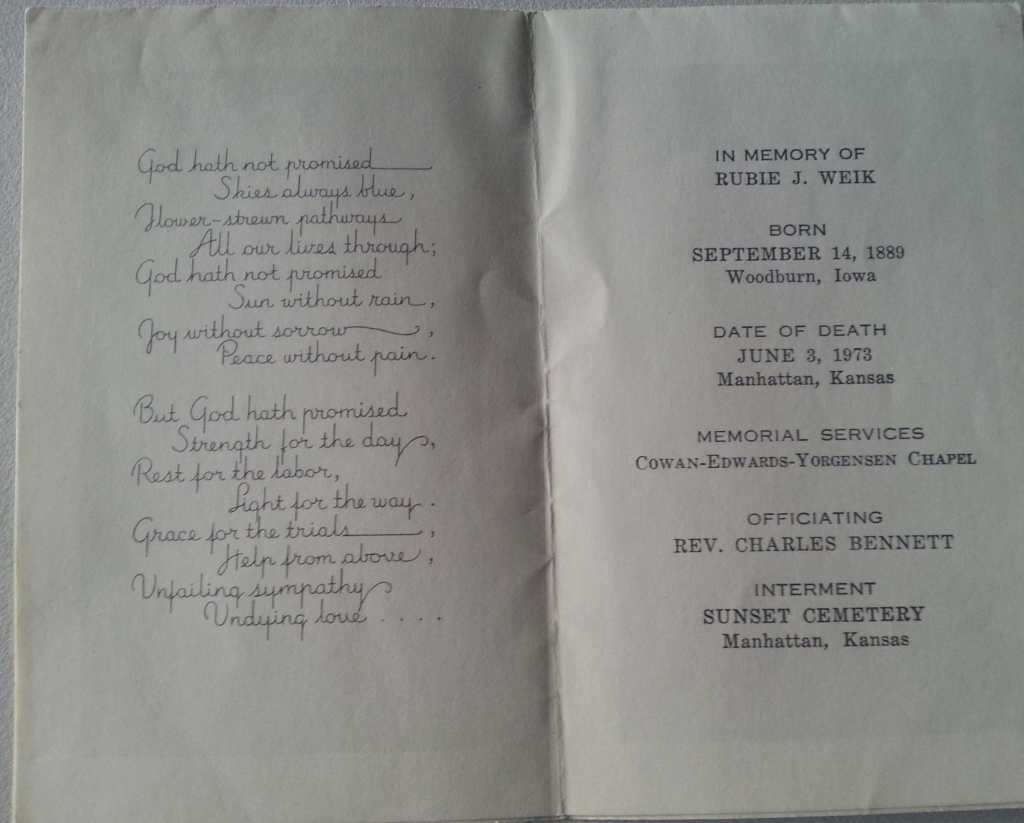 God hath not promised
Skies always blue,
Flower-strewn pathways
All our lives through;
God hath not promised
Sun without rain,
Joy without sorrow,
Peace without pain.
But God hath promised
Strength for the day,
Rest for the labor,
Light for the way.
Grace for the trials,
Help from above,
Unfailing sympathy
Undying love ....
IN MEMORY OF
RUBIE J. WEIK
BORN
SEPTEMBER 14, 1889
Woodburn, Iowa
DATE OF DEATH
JUNE 3, 1973
Manhattan, Kansas
MEMORIAL SERVICES
COWAN-EDWARDS-YORGENSEN CHAPEL
OFFICIATING
REV. CHARLES BENNETT
INTERMENT
SUNSET CEMETERY
Manhattan, Kansas